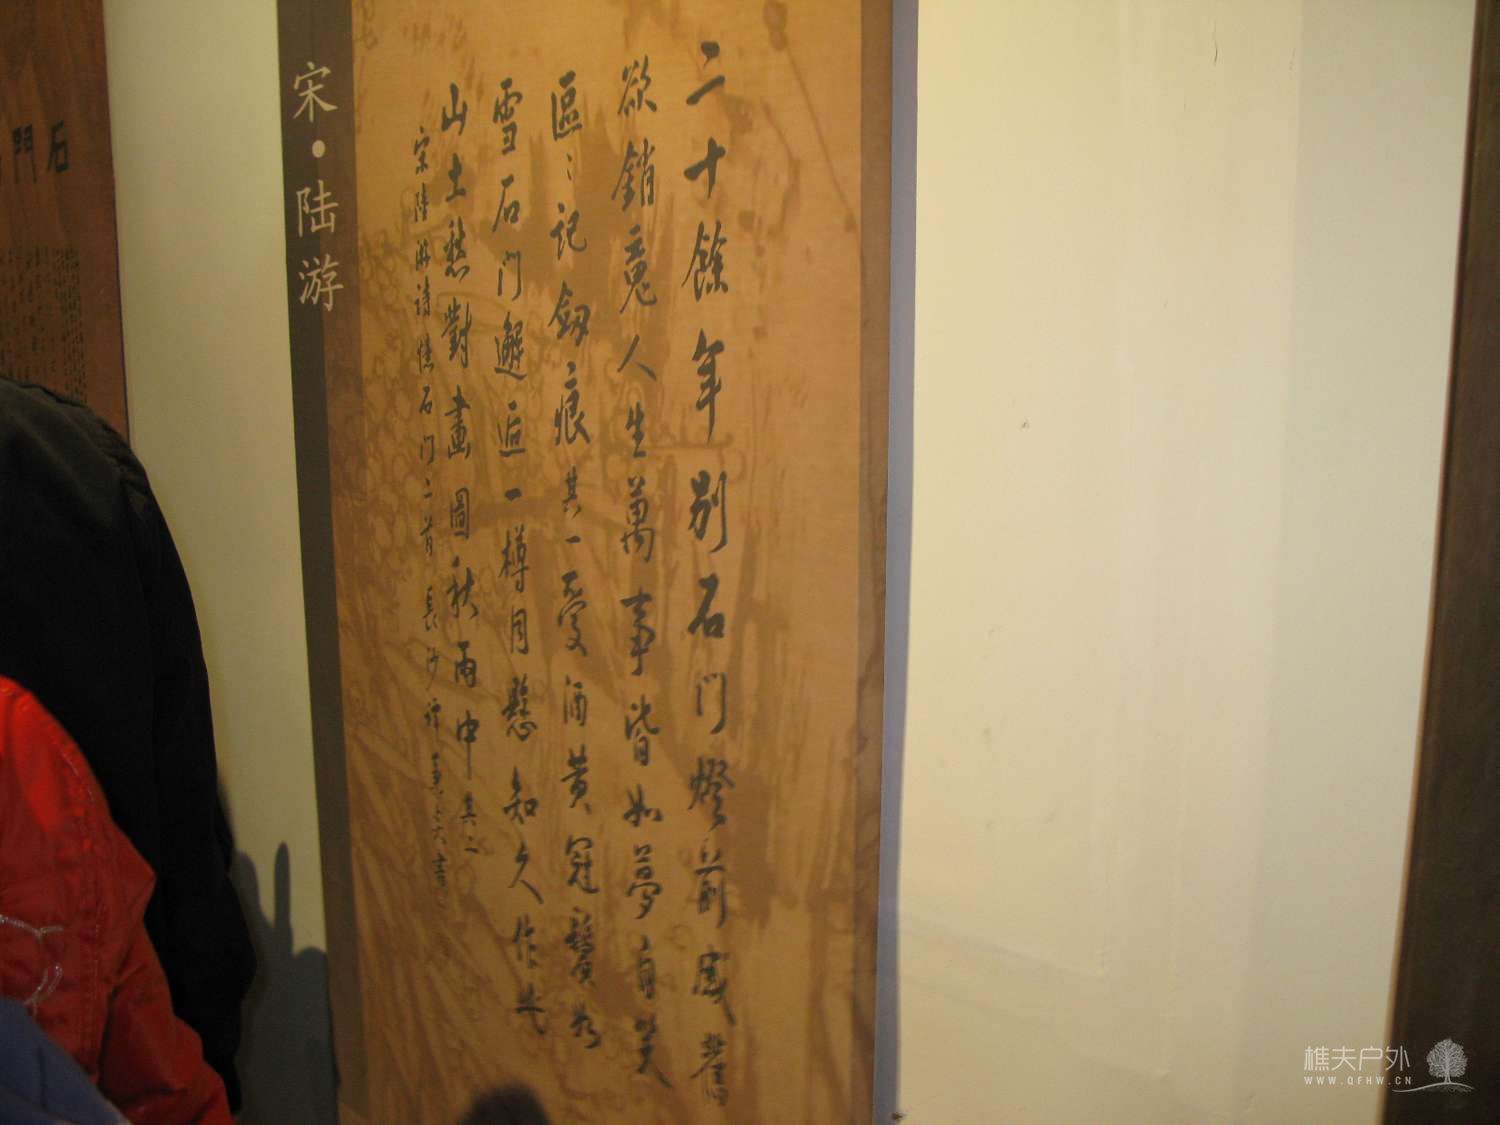 二十餘年别石门燈前感舊
欲銷魂人生萬事皆如夢自笑
區々記劔痕其一愛酒黄冠鬢如
雪石门邂逅一樽同懸知久作
山土愁對畫圖秋雨中其二
宋陸游詩憶石门二首長沙譚秉炎書
宋·陆游
石門
樵夫户外
WWW.QFHW.CN